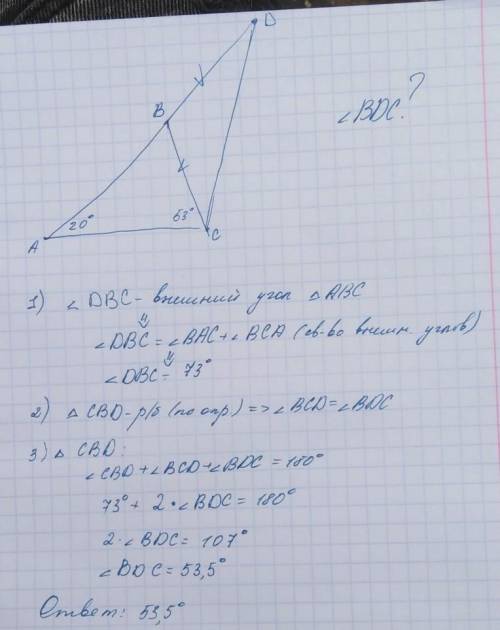 D
B
∠BDC?
20°
53°
A
C
1) ∠DBC - внешний угол △ABC
⇓
∠DBC = ∠BAC + ∠BCA (св-во внешн. углов)
⇓
∠DBC = 73°
2) △CBD - р/б (по опр) => ∠BCD = ∠BDC
3) △CBD:
∠CBD + ∠BCD + ∠BDC = 180°
73° + 2·∠BDC = 180°
2·∠BDC = 107°
∠BDC = 53,5°
Ответ: 53,5°